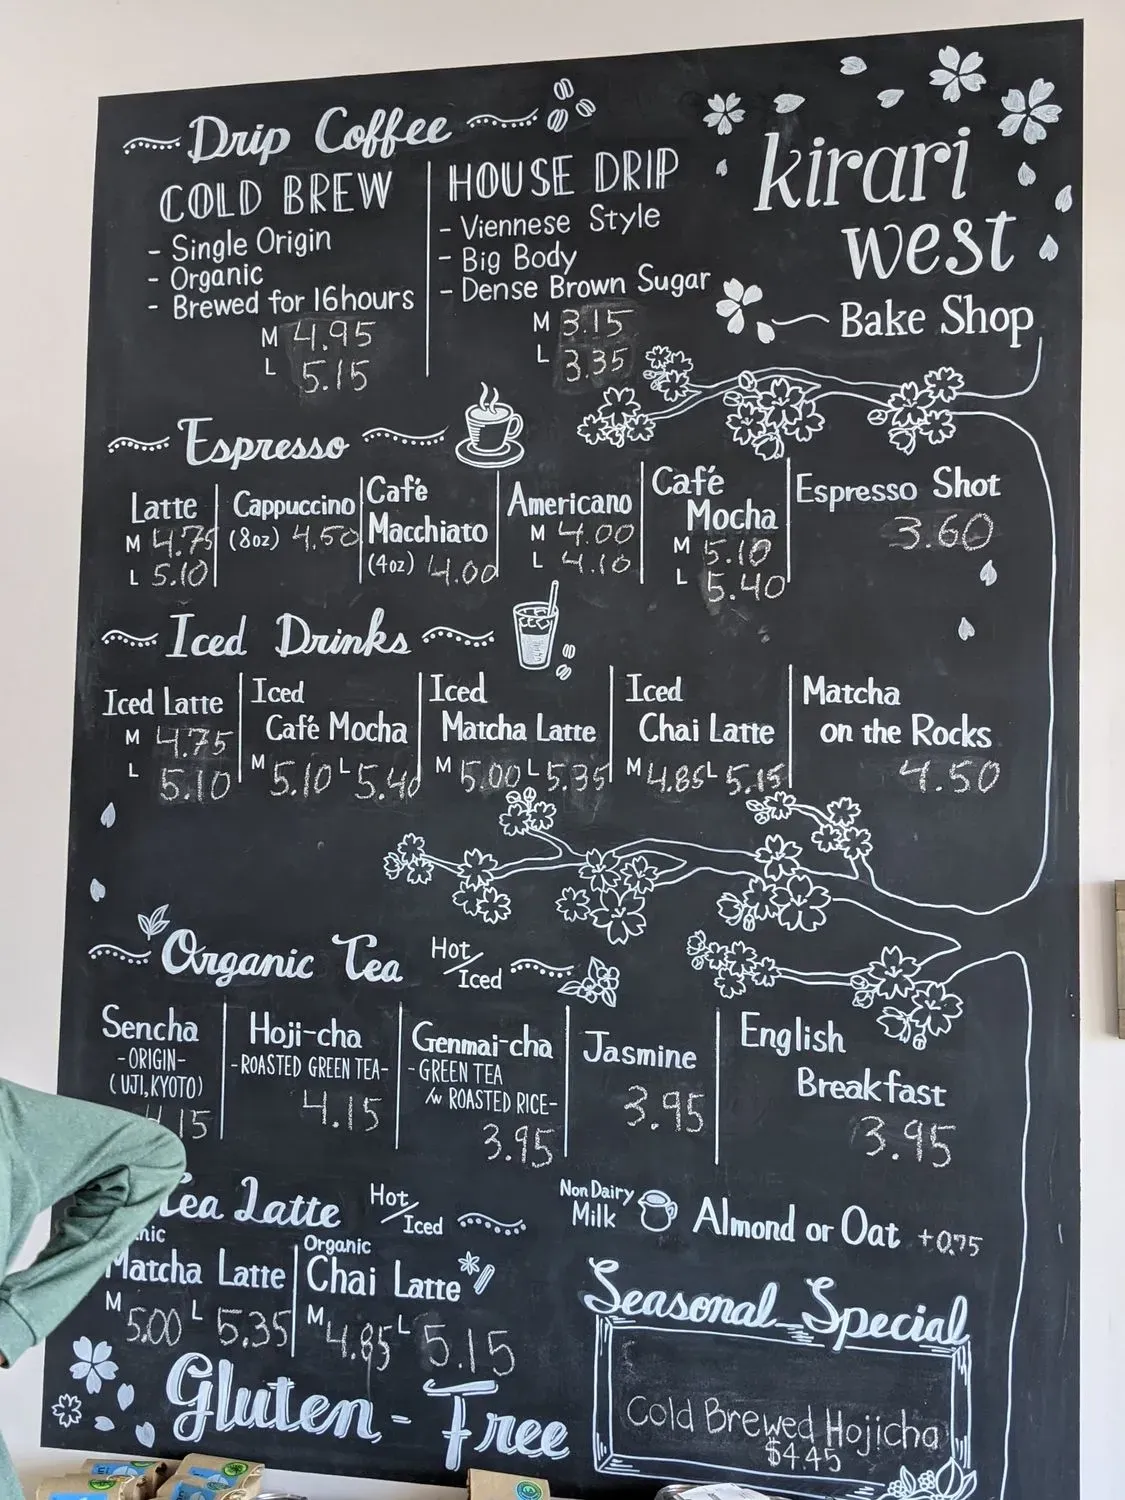 Drip Coffee
COLD BREW
- Single Origin
- Organic
- Brewed for 16hours
M 4.95
L 5.15
HOUSE DRIP
- Viennese Style
- Big Body
- Dense Brown Sugar
M 3.15
L 3.35
kirari
west
Bake Shop
Espresso
Latte
M 4.75
L 5.10
Cappuccino
(8oz) 4.50
Café
Macchiato
(4oz) 4.00
Americano
M 4.00
L 4.10
Café
Mocha
M 5.10
L 5.40
Espresso Shot
3.60
Iced Drinks
Iced Latte
M 4.75
L 5.10
Iced
Café Mocha
M 5.10 L 5.40
Iced
Matcha Latte
M 5.00 L 5.35
Iced
Chai Latte
M 4.85 L 5.15
Matcha
on the Rocks
4.50
Organic Tea Hot/Iced
Sencha
-ORIGIN-
(UJI,KYOTO)
4.15
Hoji-cha
-ROASTED GREEN TEA-
4.15
Genmai-cha
-GREEN TEA
/w ROASTED RICE-
3.95
Jasmine
3.95
English
Breakfast
3.95
Tea Latte Hot/Iced
nic
Matcha Latte
M 5.00 L 5.35
Organic
Chai Latte
M 4.85 L 5.15
Non Dairy
Milk
Almond or Oat +0.75
Gluten-Free
Seasonal Special
Cold Brewed Hojicha
$4.45